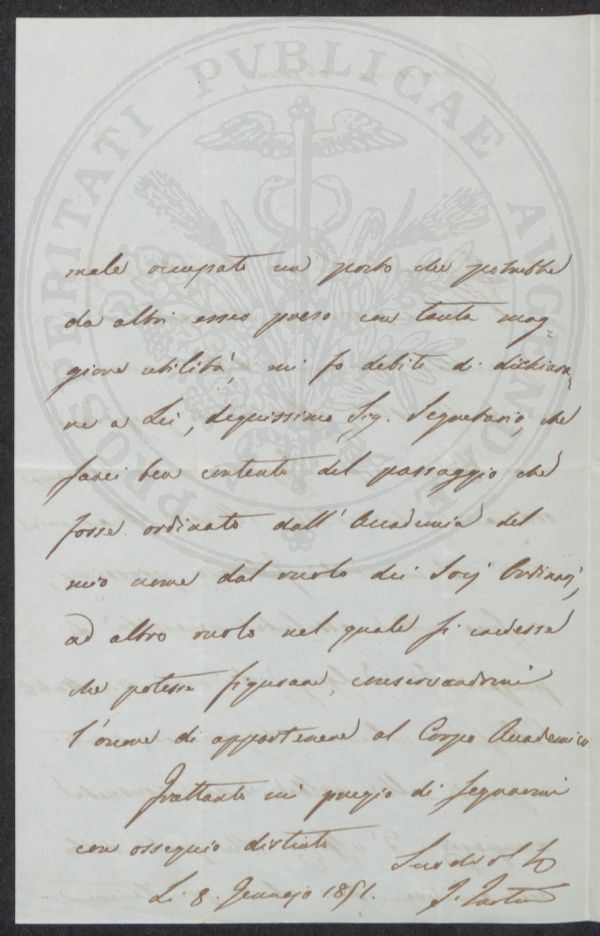 PROSPERITATI PVBLICAE AVGENDAE
male occupato un posto che potrebbe
da altri esser preso con tanta mag=
giore utilità, mi fo debito di dichiara=
re a Lei, degnissimo Sig. Segretario, che
sarei ben contento del passaggio che
fosse ordinato dall' Accademia del
mio nome dal ruolo dei Socj Ordinarj,
ad altro ruolo nel quale si credesse
che potesse figurare, conservandomi
l'onore di appartenere al Corpo Accademico
Frattanto mi pregio di segnarmi
con ossequio distinto
Li 8. Gennajo 1851.